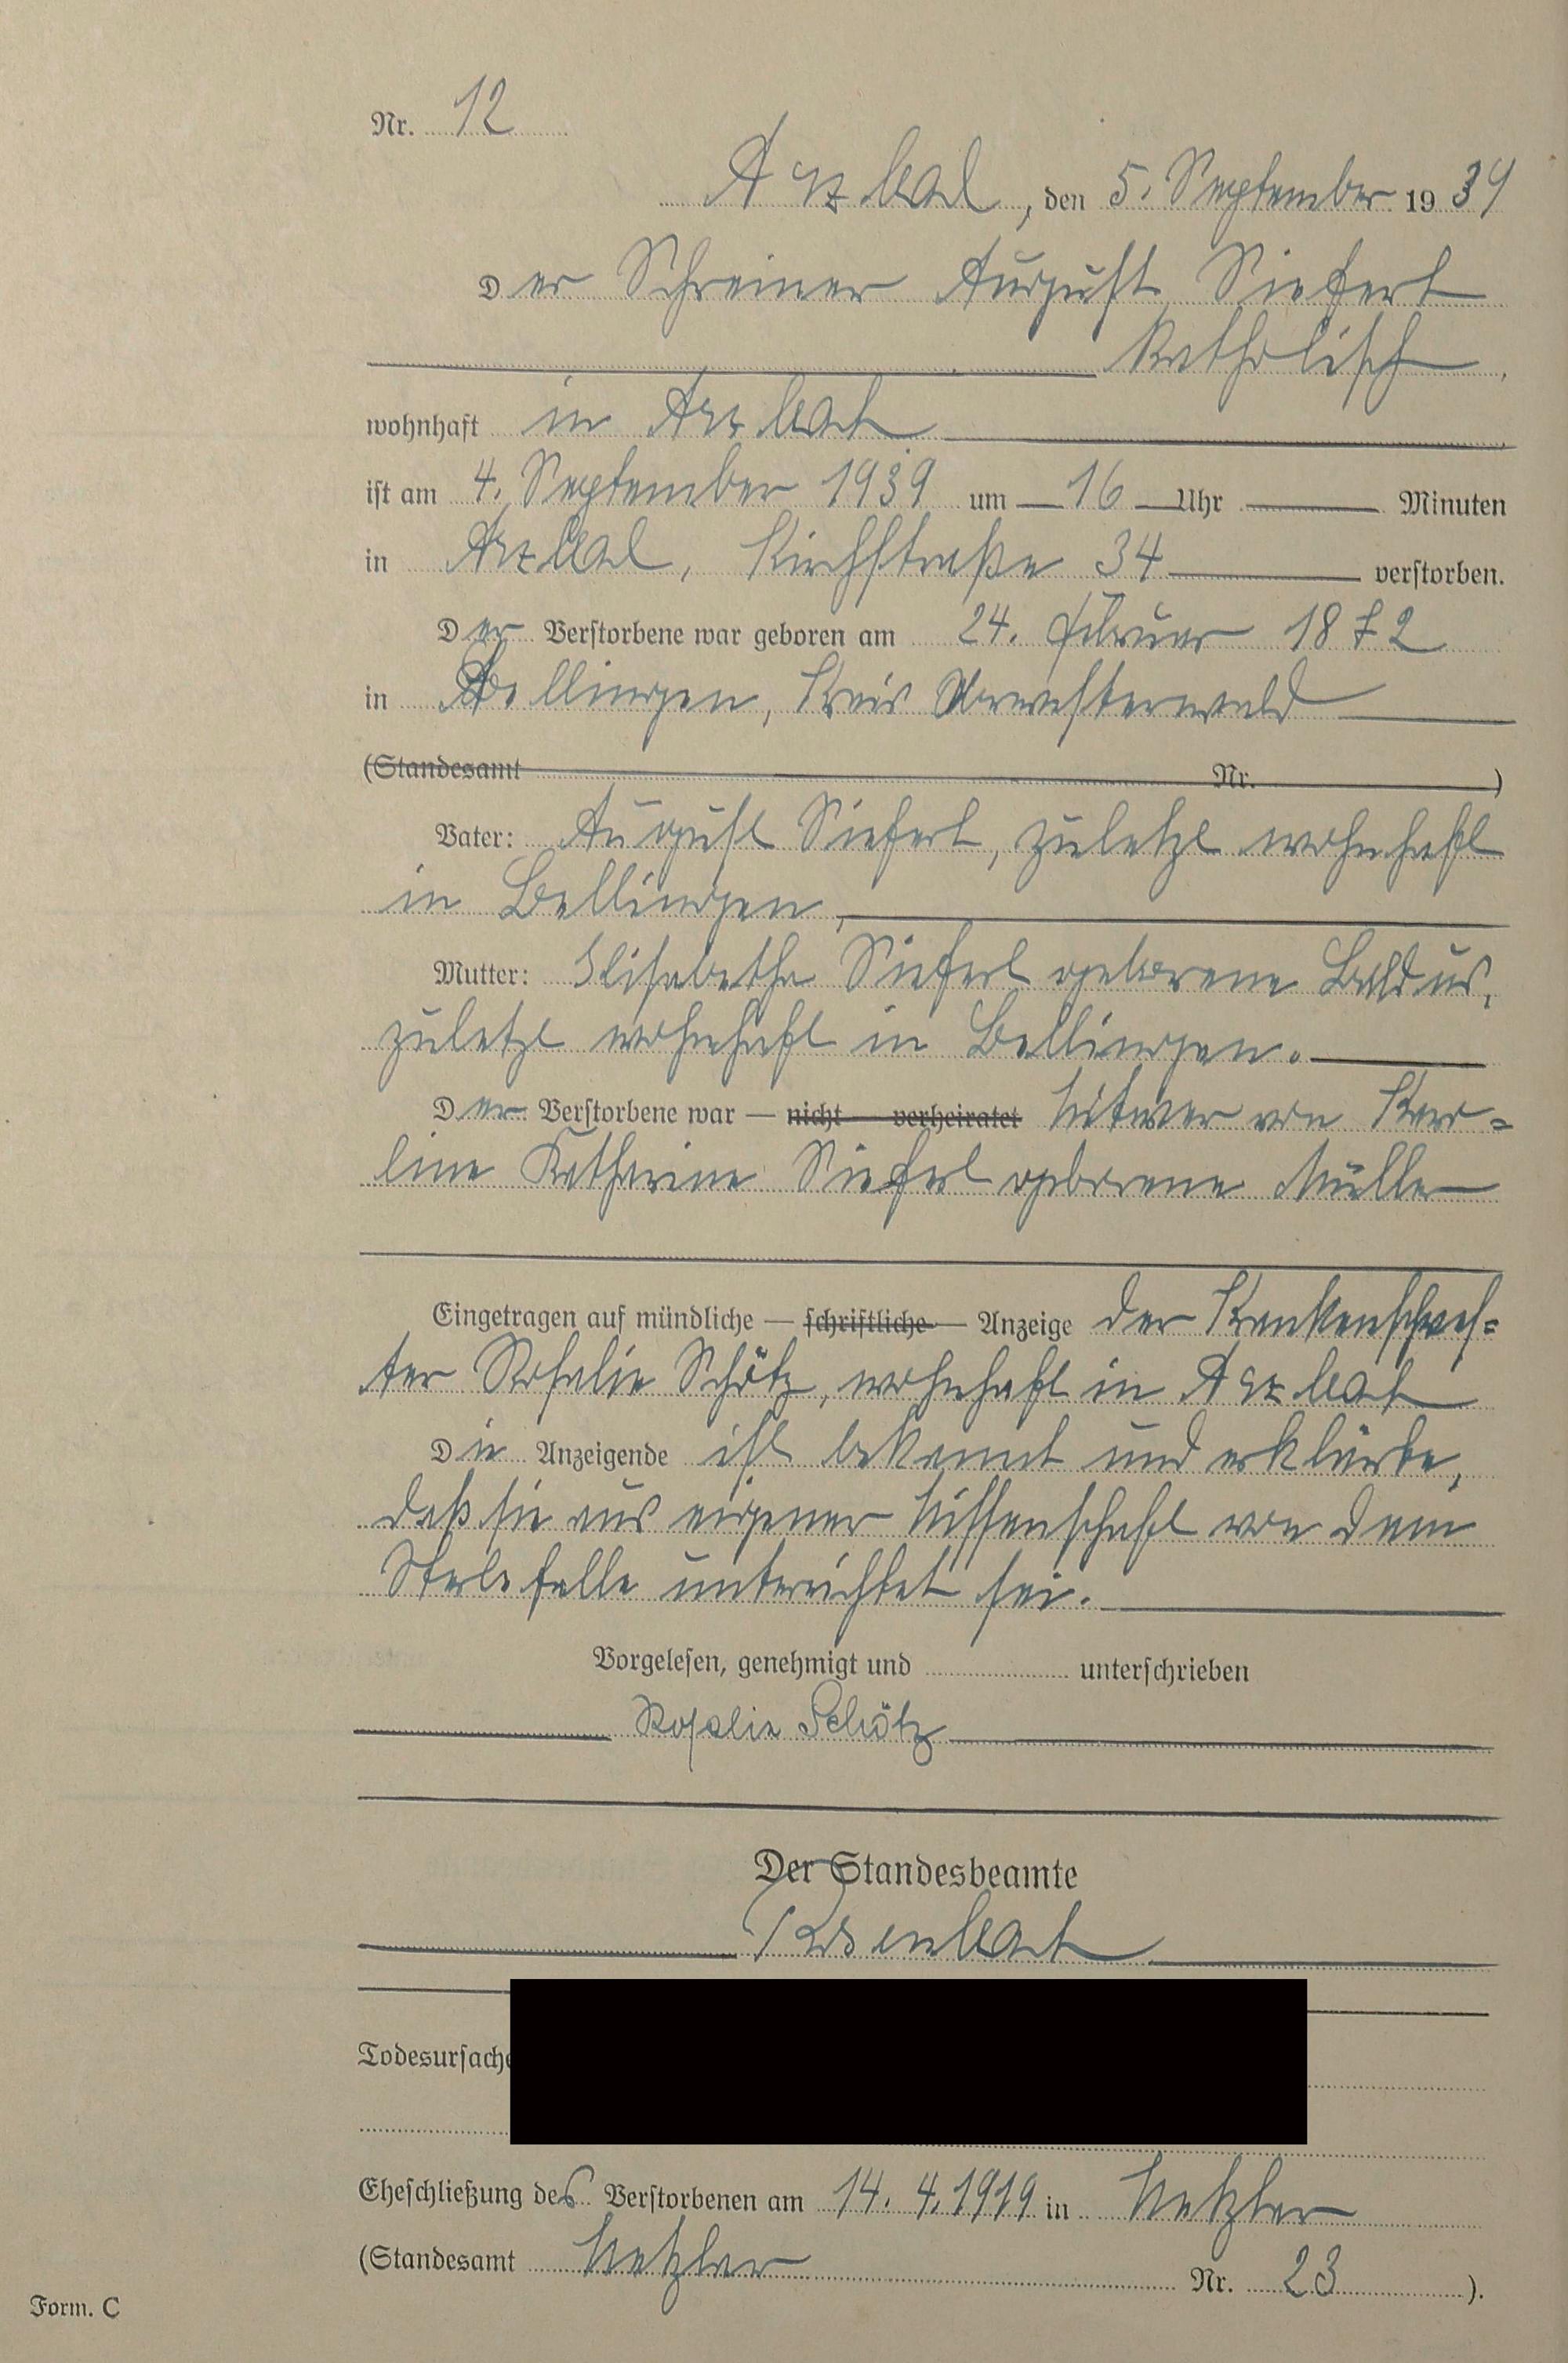 Nr. 12
Arzbach, den 5. September 1939
Der Schreiner August Siefert
katholisch,
wohnhaft in Arzbach
ist am 4. September 1939 um 16 Uhr Minuten
in Arzbach, Kirchstraße 34 verstorben.
Der Verstorbene war geboren am 24. Februar 1872
in Bellingen, Kreis Oberwesterwald
(Standesamt Nr. )
Vater: August Siefert, zuletzt wohnhaft
in Bellingen,
Mutter: Elisabetha Siefert geborene Baldus,
zuletzt wohnhaft in Bellingen.
Der Verstorbene war — nicht — verheiratet Witwer von Karo=
line Katharine Siefert geborene Müller
Eingetragen auf mündliche — schriftliche — Anzeige der Krankenschwes=
ter Rosalie Schötz, wohnhaft in Arzbach
Die Anzeigende ist bekannt und erklärte,
daß sie aus eigener Wissenschaft von dem
Sterbefalle unterrichtet sei.
Vorgelesen, genehmigt und unterschrieben
Rosalie Schötz
Der Standesbeamte
Todesursache
Eheschließung des Verstorbenen am 14. 4. 1919 in Wetzlar
(Standesamt Wetzlar Nr. 23 ).
Form. C